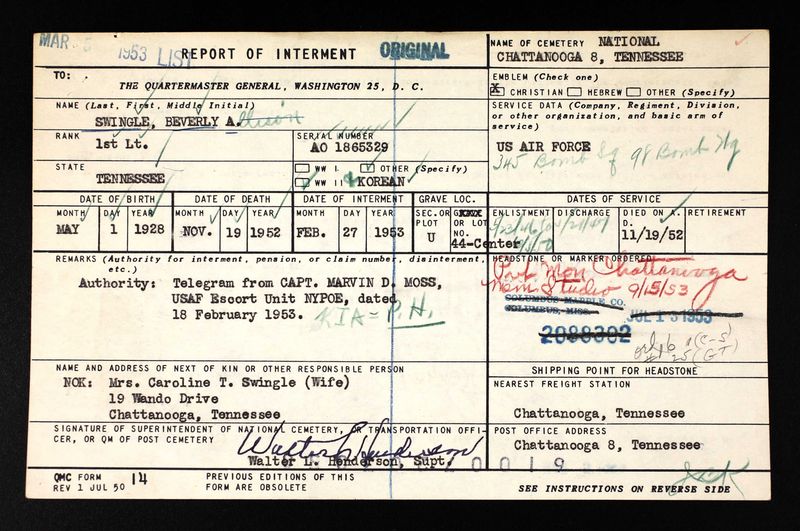 MAR 5 1953 LIST
REPORT OF INTERMENT
ORIGINAL
NAME OF CEMETERY NATIONAL
CHATTANOOGA 8, TENNESSEE
TO:
THE QUARTERMASTER GENERAL, WASHINGTON 25, D. C.
EMBLEM (Check one)
X CHRISTIAN HEBREW OTHER (Specify)
NAME (Last, First, Middle Initial)
SWINGLE, BEVERLY A.llison
SERVICE DATA (Company, Regiment, Division, or other organization, and basic arm of service)
US AIR FORCE
345 Bomb Sq 98 Bomb Wg
RANK
1st Lt.
SERIAL NUMBER
AO 1865329
STATE
TENNESSEE
WW I OTHER (Specify)
WW II & KOREAN
DATE OF BIRTH DATE OF DEATH DATE OF INTERMENT GRAVE LOC. DATES OF SERVICE
MONTH DAY YEAR MONTH DAY YEAR MONTH DAY YEAR SEC. OR PLOT OR LOT NO. ENLISTMENT DISCHARGE DIED ON A. D. RETIREMENT
MAY 1 1928 NOV. 19 1952 FEB. 27 1953 U 44-Center 11/19/52
REMARKS (Authority for interment, pension, or claim number, disinterment, etc.)
Authority: Telegram from CAPT. MARVIN D. MOSS,
USAF Escort Unit NYPOE, dated
18 February 1953. KIA = P.H.
HEADSTONE OR MARKER ORDERED
Pvt Mon Chattanooga
Mem Studio 9/15/53
COLUMBUS MARBLE CO.
COLUMBUS, MISS.
JUL 13 1953
2088302
NAME AND ADDRESS OF NEXT OF KIN OR OTHER RESPONSIBLE PERSON
NOK: Mrs. Caroline T. Swingle (Wife)
19 Wando Drive
Chattanooga, Tennessee
SHIPPING POINT FOR HEADSTONE
NEAREST FREIGHT STATION
Chattanooga, Tennessee
SIGNATURE OF SUPERINTENDENT OF NATIONAL CEMETERY, OR TRANSPORTATION OFFICER, OR QM OF POST CEMETERY
Walter L. Henderson
Walter L. Henderson, Supt.
POST OFFICE ADDRESS
Chattanooga 8, Tennessee
0019
QMC FORM 14
REV 1 JUL 50
PREVIOUS EDITIONS OF THIS
FORM ARE OBSOLETE
SEE INSTRUCTIONS ON REVERSE SIDE